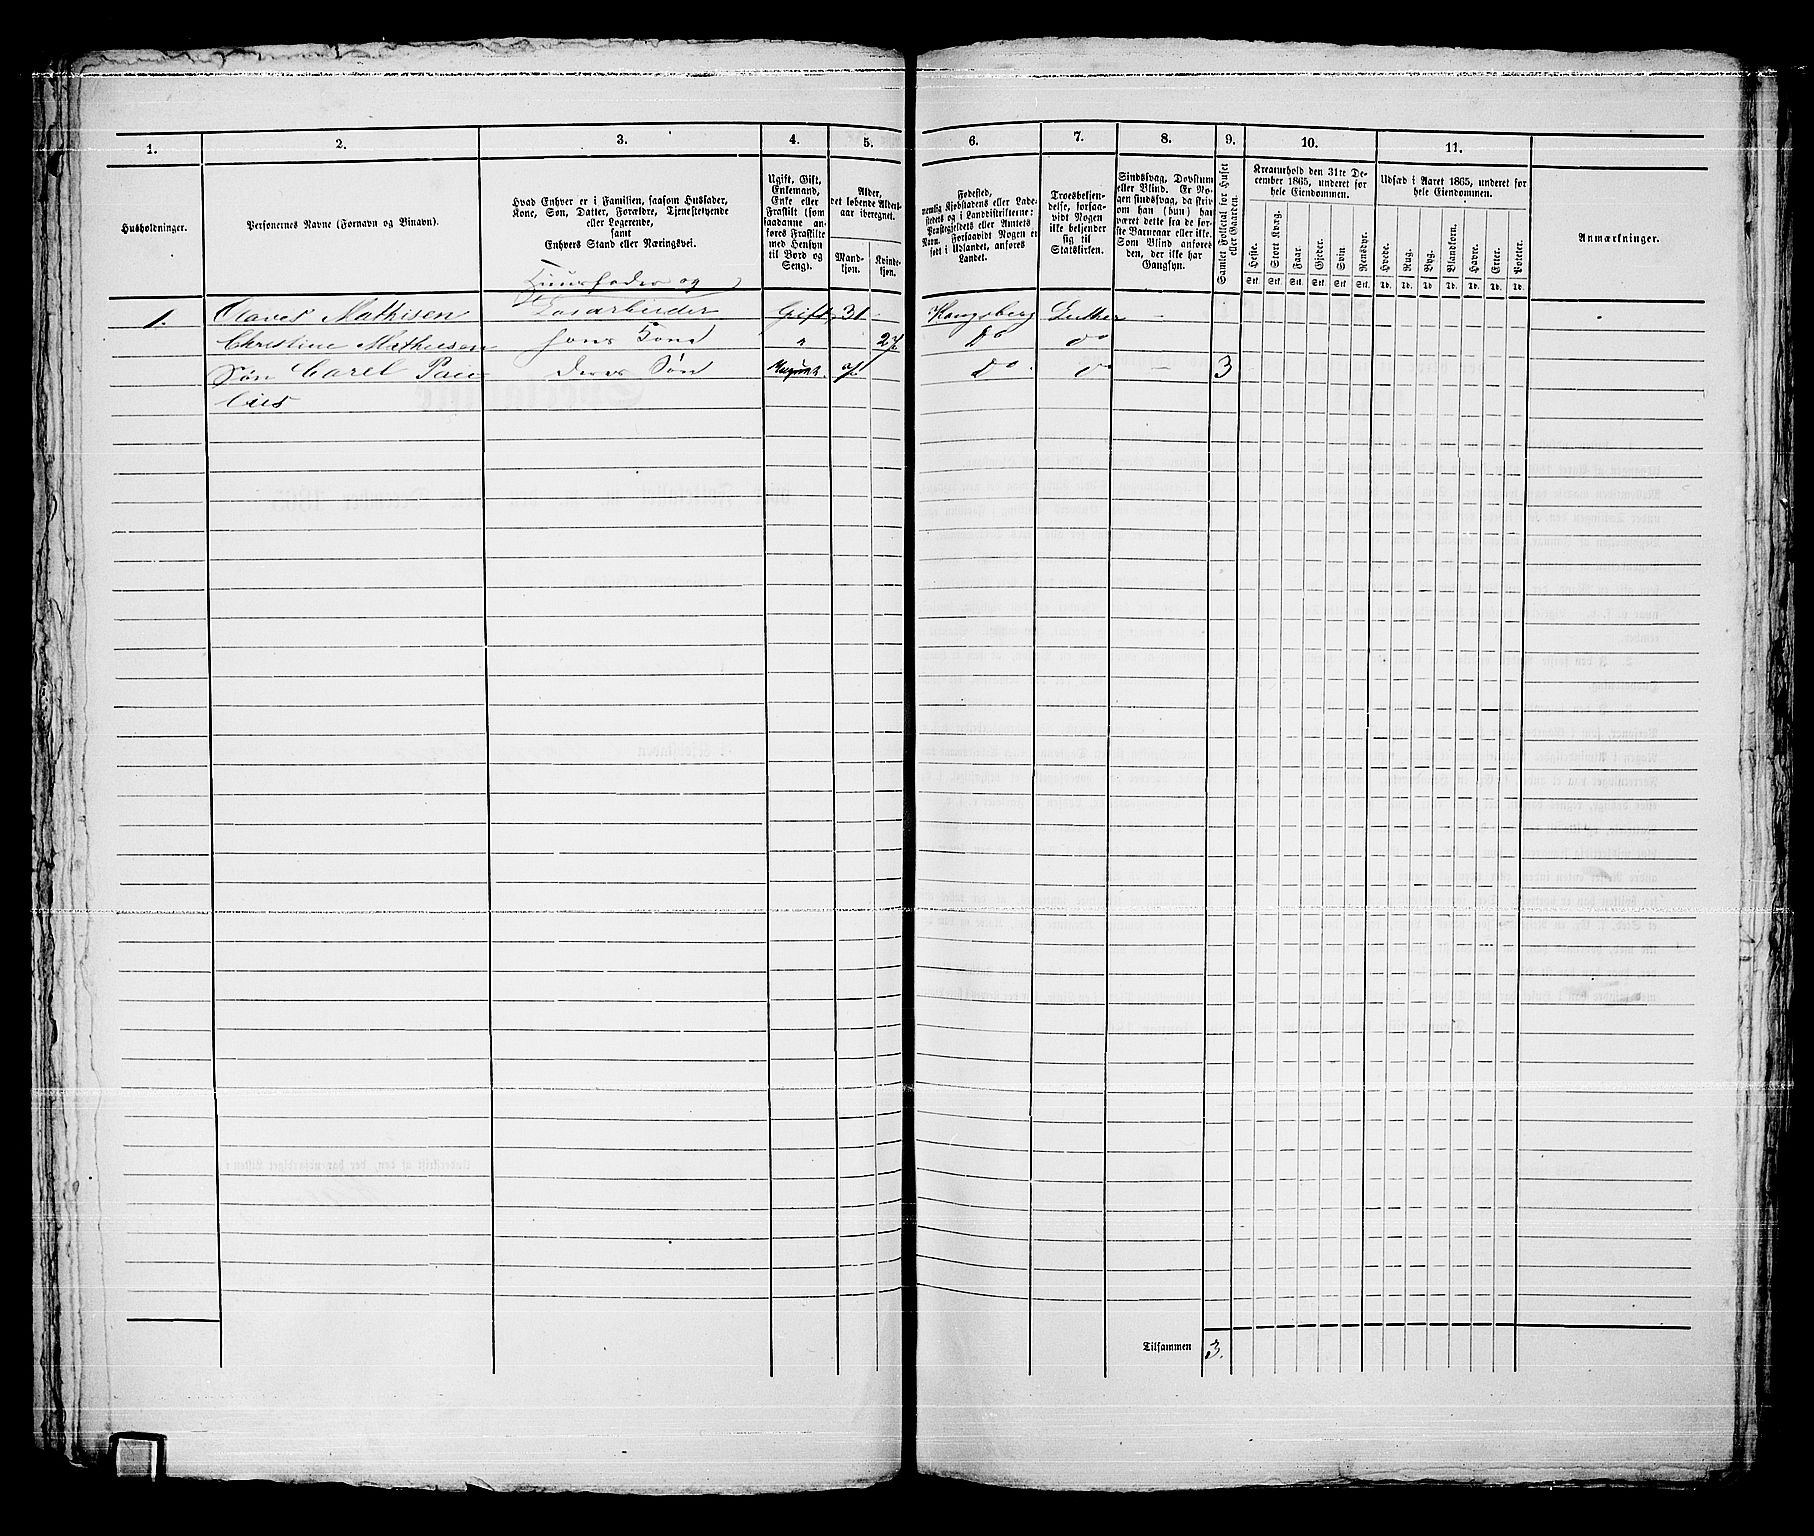 1. 2. 3. 4. 5. 6. 7. 8. 9. 10. 11.
Husholdninger.
Personernes Navne (Fornavn og Binavn).
Hvad Enhver er i Familien, saasom Husfader,
Kone, Søn, Datter, Forældre, Tjenestetyende
eller Logerende,
samt
Enhvers Stand eller Næringsvei.
Ugift, Gift,
Enkemand,
Enke eller
Fraskilt (som
saadanne an-
føres Fraskilte
med Hensyn
til Bord og
Seng).
Alder,
det løbende Alders-
aar iberegnet.
Mand-
kjøn.
Kvinde-
kjøn.
Fødested,
nemlig Kjøbstadens eller Lade-
stedets og i Landdistrikterne:
Præstegjeldets eller Amtets
Navn. Forsaavidt Nogen er
født i Udlandet, anføres
Landet.
Troesbekjen-
delse, forsaa-
vidt Nogen
ikke bekjender
sig til
Statskirken.
Sindssvag, Døvstum
eller Blind. Er No-
gen sindssvag, da skriv
om han (hun) har
været dette fra de før-
ste Barneaar eller ikke.
Som Blind anføres
den, der ikke har
Gangsyn.
Samlet Folketal for Huset
eller Gaarden.
Kreaturhold den 31te De-
cember 1865, underet for
hele Eiendommen.
Heste.
Stort Kvæg.
Faar.
Gjeder.
Svin.
Rensdyr.
Stk. Stk. Stk. Stk. Stk. Stk.
Udsæd i Aaret 1865, underet for
hele Eiendommen.
Hvede.
Rug.
Byg.
Blandkorn.
Havre.
Erter.
Poteter.
Td. Td. Td. Td. Td. Td. Td.
Anmærkninger.
Huusfader og
1. Olaves Mathisen Gift 31 - Kongsberg Luther -
Christine Mathisen hans Kone " 27 Do do
Søn Carel Pau deres Søn Do. do - 3
lius
Tilsammen 3.